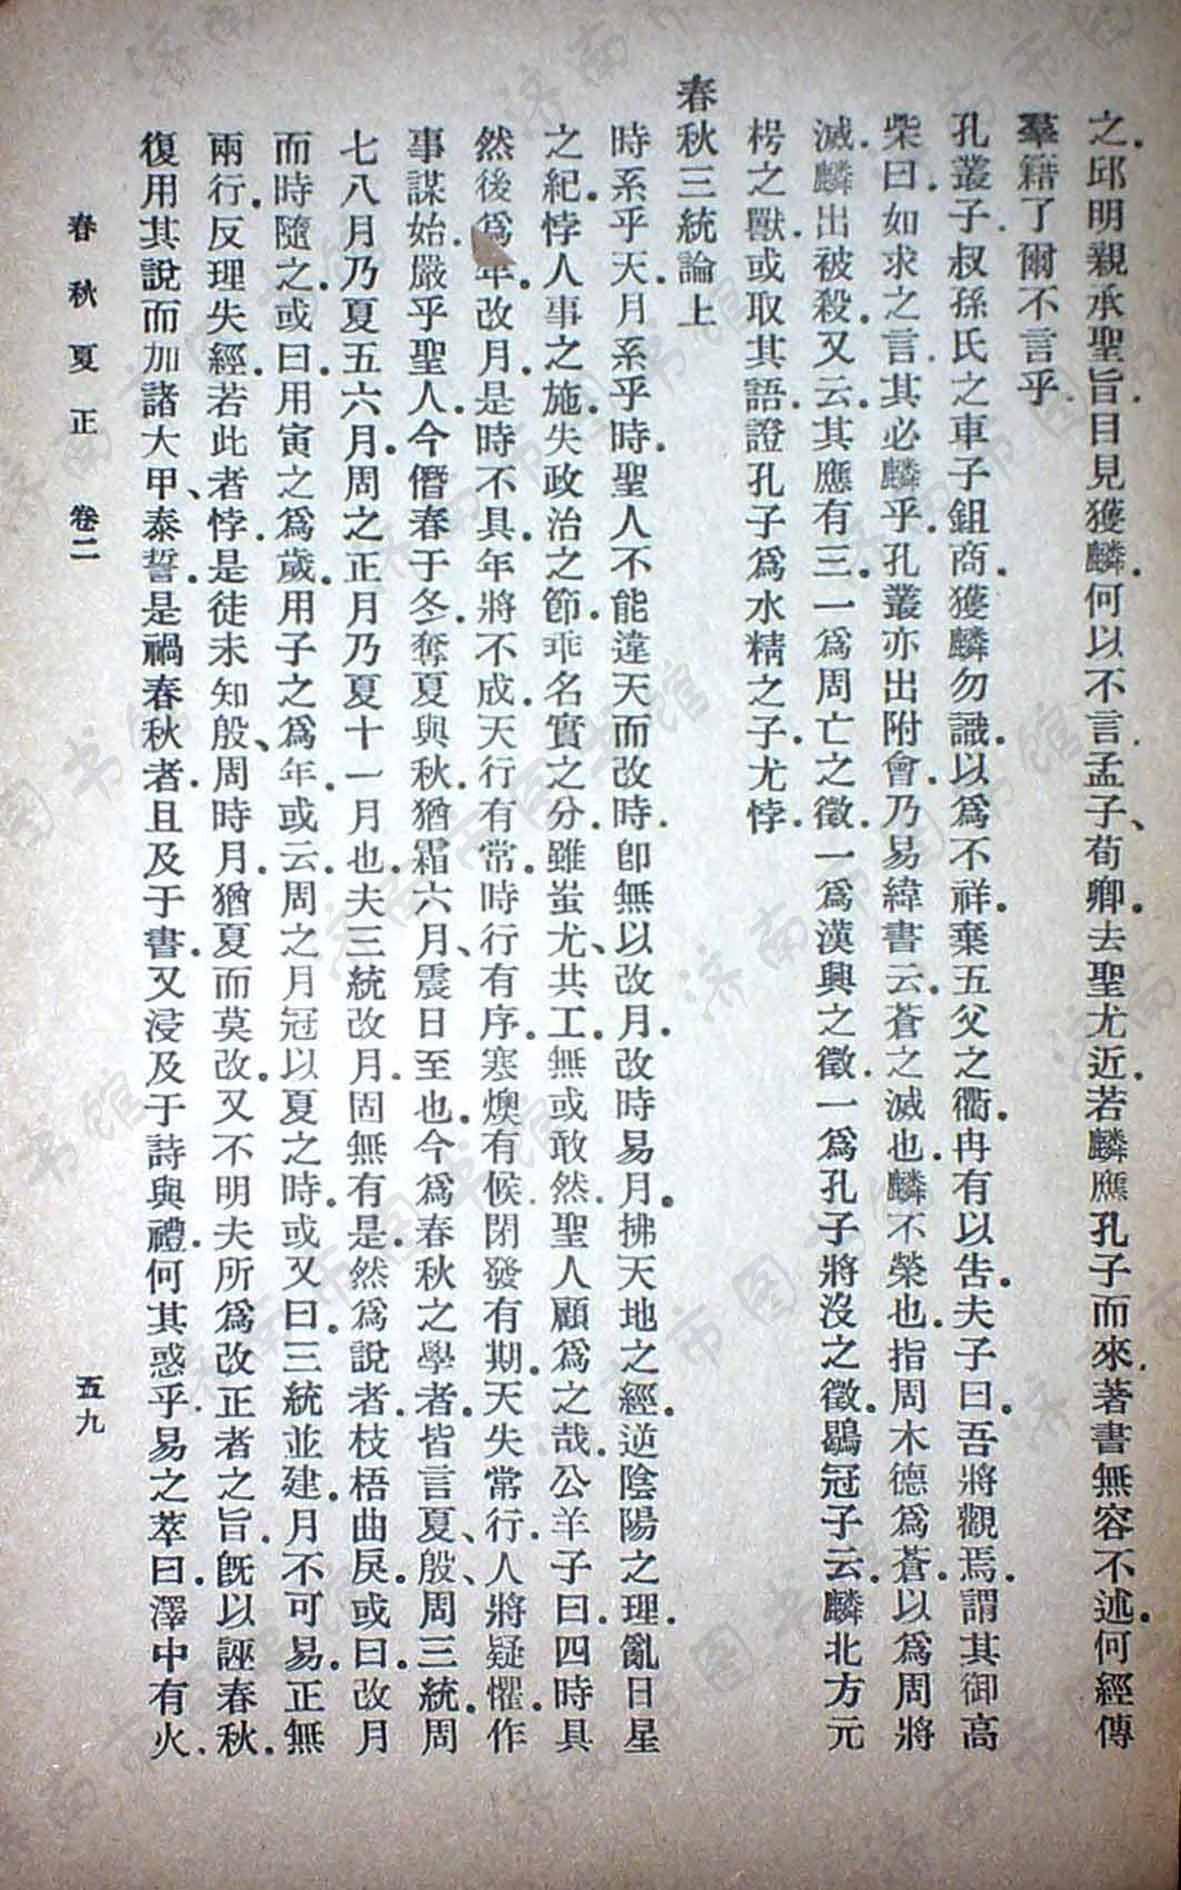 之．邱明親承聖旨．目見獲麟．何以不言．孟子、荀卿．去聖尤近．若麟應孔子而來．著書無容不述．何經傳
羣籍了爾不言乎．
孔叢子．叔孫氏之車子鉏商．獲麟勿識．以爲不祥．棄五父之衢．冉有以告．夫子曰．吾將觀焉．謂其御高
柴曰．如求之言．其必麟乎．孔叢亦出附會．乃易緯書云．蒼之滅也．麟不榮也．指周木德爲蒼．以爲周將
滅．麟出被殺．又云．其應有三．一爲周亡之徵．一爲漢興之徵．一爲孔子將沒之徵．鶡冠子云．麟北方元
枵之獸．或取其語．證孔子爲水精之子．尤悖．
春秋三統論上
時系乎天．月系乎時．聖人不能違天而改時．卽無以改月．改時易月．拂天地之經．逆陰陽之理．亂日星
之紀．悖人事之施．失政治之節．乖名實之分．雖蚩尤、共工．無或敢然．聖人顧爲之哉．公羊子曰．四時具
然後爲年．改月．是時不具．年將不成．天行有常．時行有序．寒燠有候．閉發有期．天失常行．人將疑懼．作
事謀始．嚴乎聖人．今僭春于冬．奪夏與秋．猶霜六月、震日至也．今爲春秋之學者．皆言夏、殷、周三統．周
七八月．乃夏五六月．周之正月．乃夏十一月也．夫三統改月．固無有是．然爲說者．枝梧曲戾．或曰．改月
而時隨之．或曰．用寅之爲歲．用子之爲年．或云．周之月冠以夏之時．或又曰．三統並建．月不可易．正無
兩行．反理失經．若此者悖．是徒未知殷、周時月．猶夏而莫改．又不明夫所爲改正者之旨．旣以誣春秋．
復用其說而加諸大甲、泰誓．是禍春秋者．且及于書．又浸及于詩與禮．何其惑乎．易之萃曰．澤中有火．
春秋夏正 卷二 五九